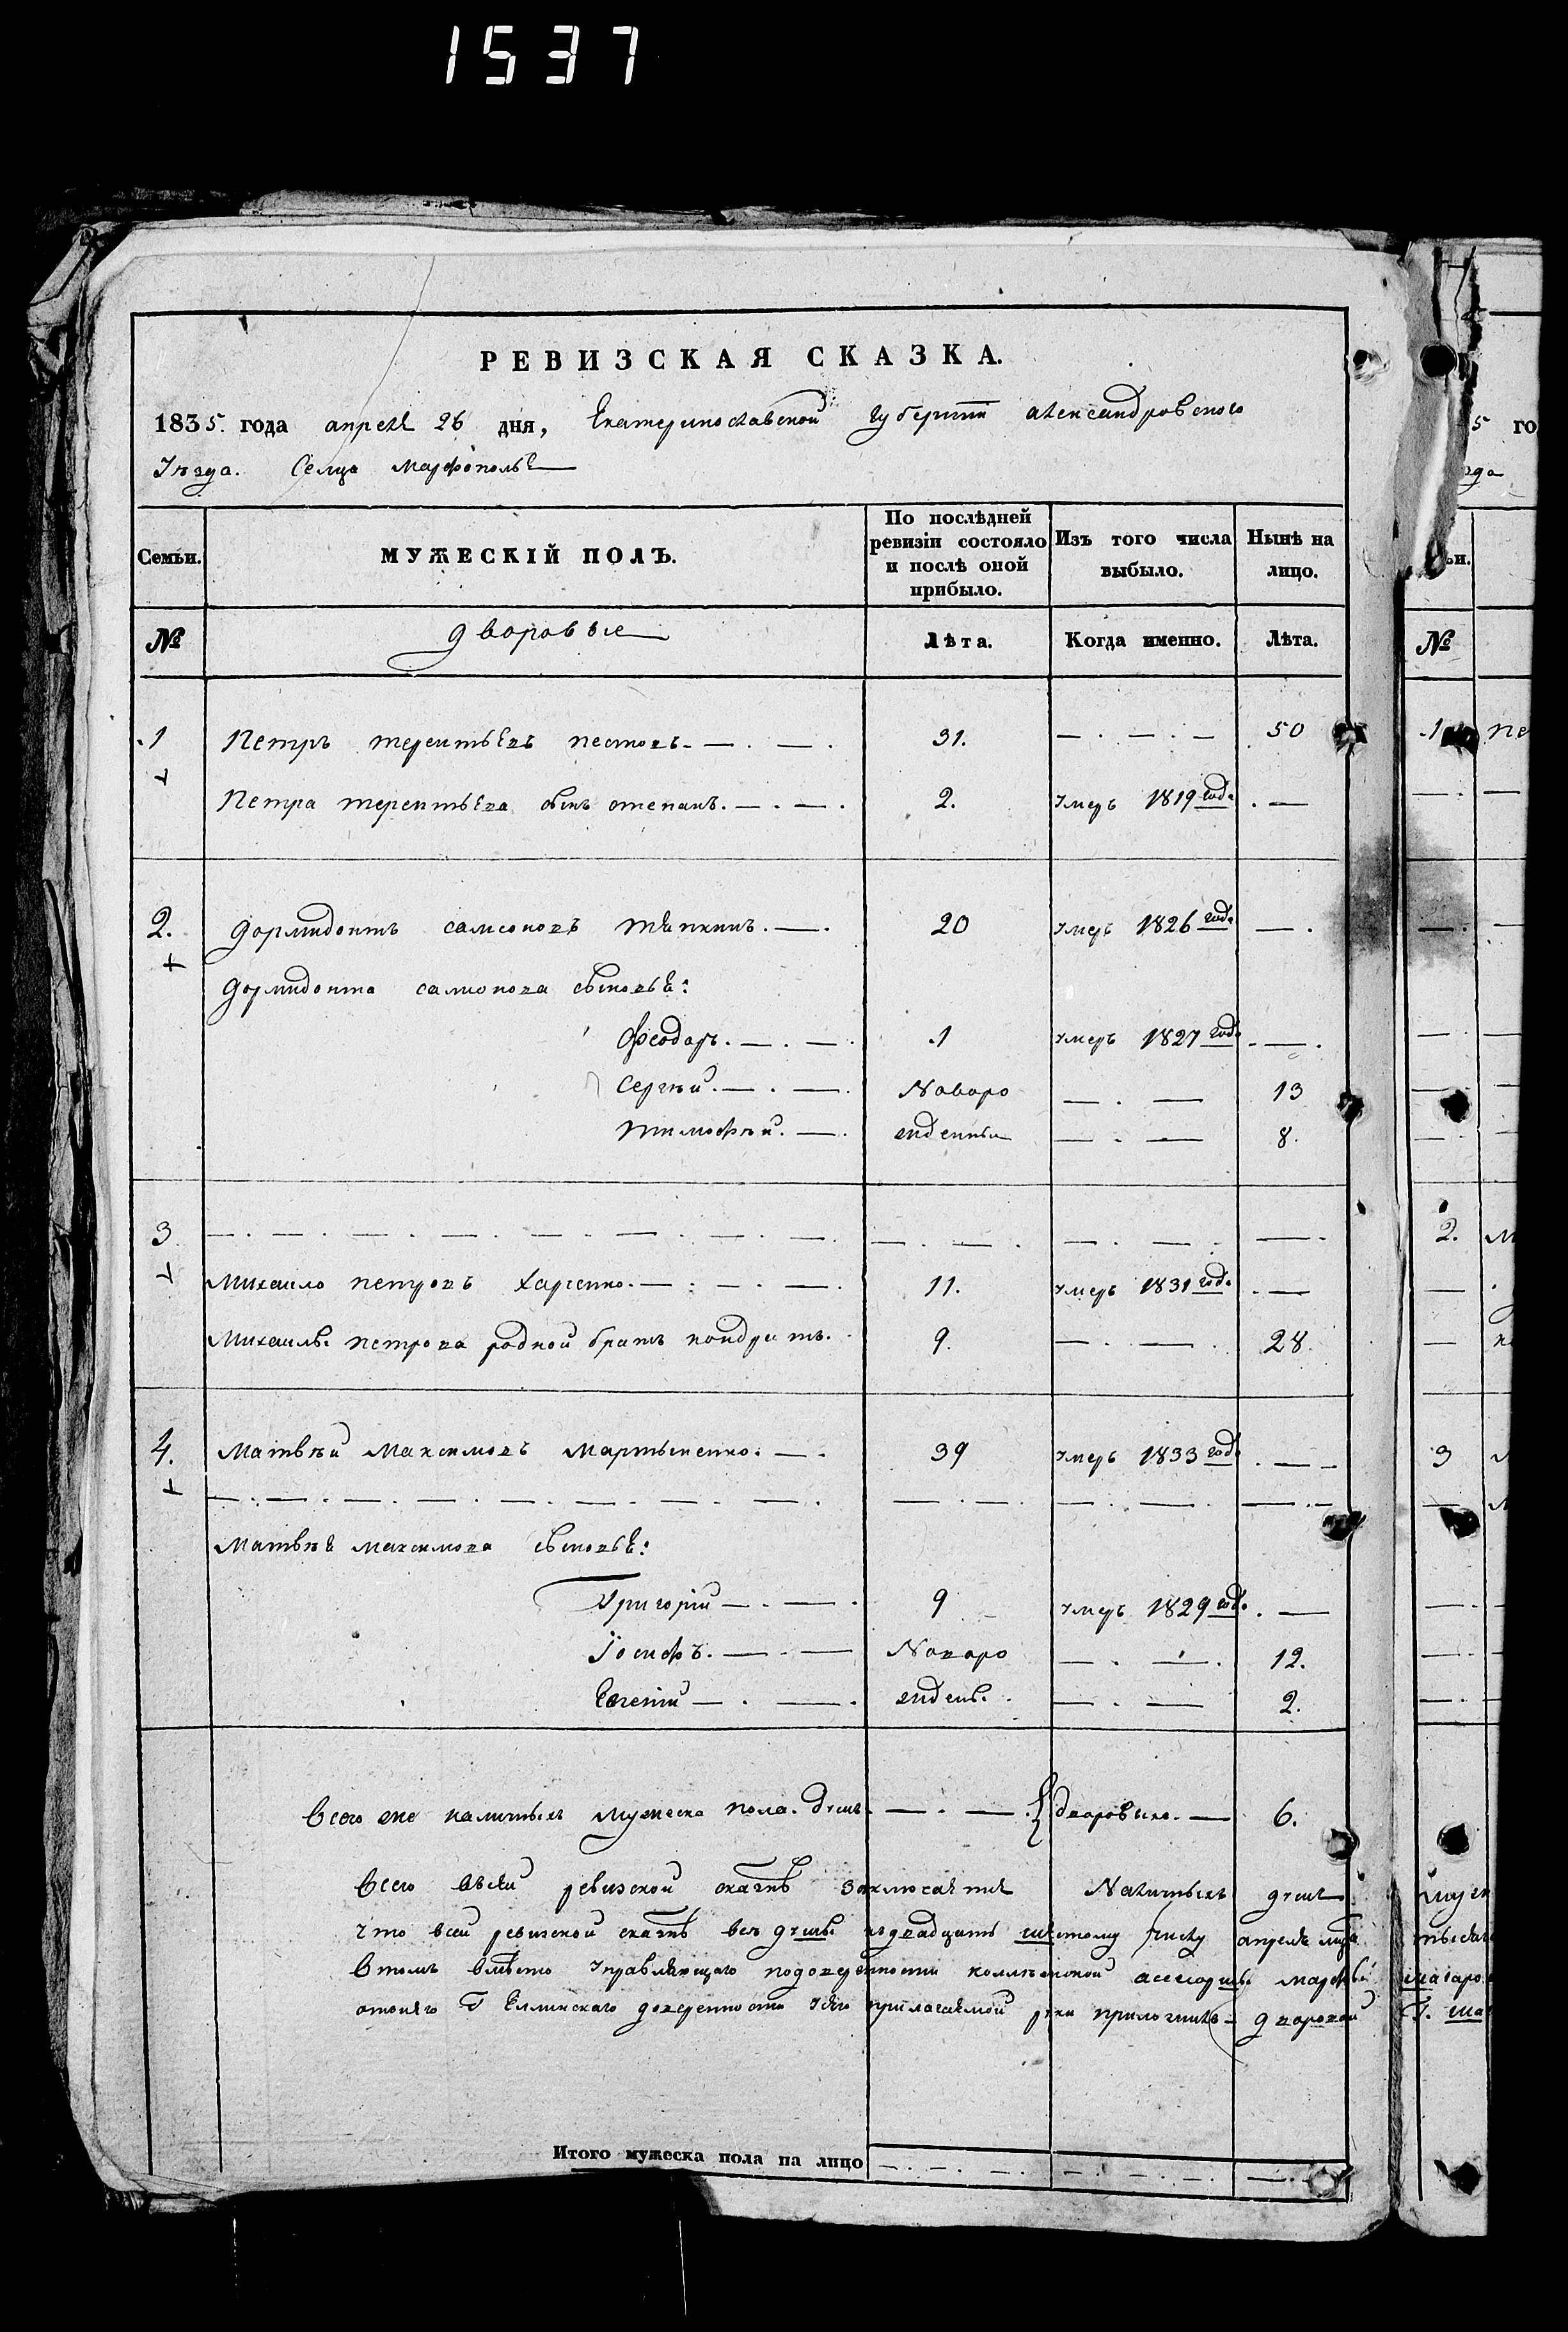 1537
РЕВИЗСКАЯ СКАЗКА.
1835. года апреля 26 дня, Екатеринославской губернии александровского
Уѣзда. Селца марфополья
Семьи. МУЖЕСКІЙ ПОЛЪ. По послѣдней ревизіи состояло и послѣ оной прибыло. Изъ того числа выбыло. Нынѣ на лицо.
№ дворовые Лѣта. Когда именно. Лѣта.
1 Петръ терентьевъ пестовъ. 31. 50
Петра терентьева сынъ степанъ. 2. умеръ 1819 года
2. дормидонтъ самсоновъ тяпкинъ. 20 умеръ 1826 года
дормидонта самсонова сыновья:
Феодоръ. 1 умеръ 1827 года
Сергѣй. Новоро 13
тимофѣй. жденныи 8.
3
Михаило петровъ харченко. 11. умеръ 1831 года
Михаилы петрова родной братъ кондратъ. 9. 28.
4. Матвѣй Максимовъ Мартыненко. 39 умеръ 1833 года
Матвѣя максимова сыновья:
Григорій 9 умеръ 1829 года
Іосифъ. Новоро 12.
Евгеній жден. 2.
Всего же наличныхъ мужеска пола. душъ. дворовыхъ. 6.
Всего всей ревизской сказкѣ заключается Наличныхъ душъ
что всей ревизской сказкѣ всѣ души по двадцать шестому числу апреля
Втомъ вместо Управляющаго
приложилъ дворовой
Итого мужеска пола на лицо
5 го
№
1 пе
2. м
3 м